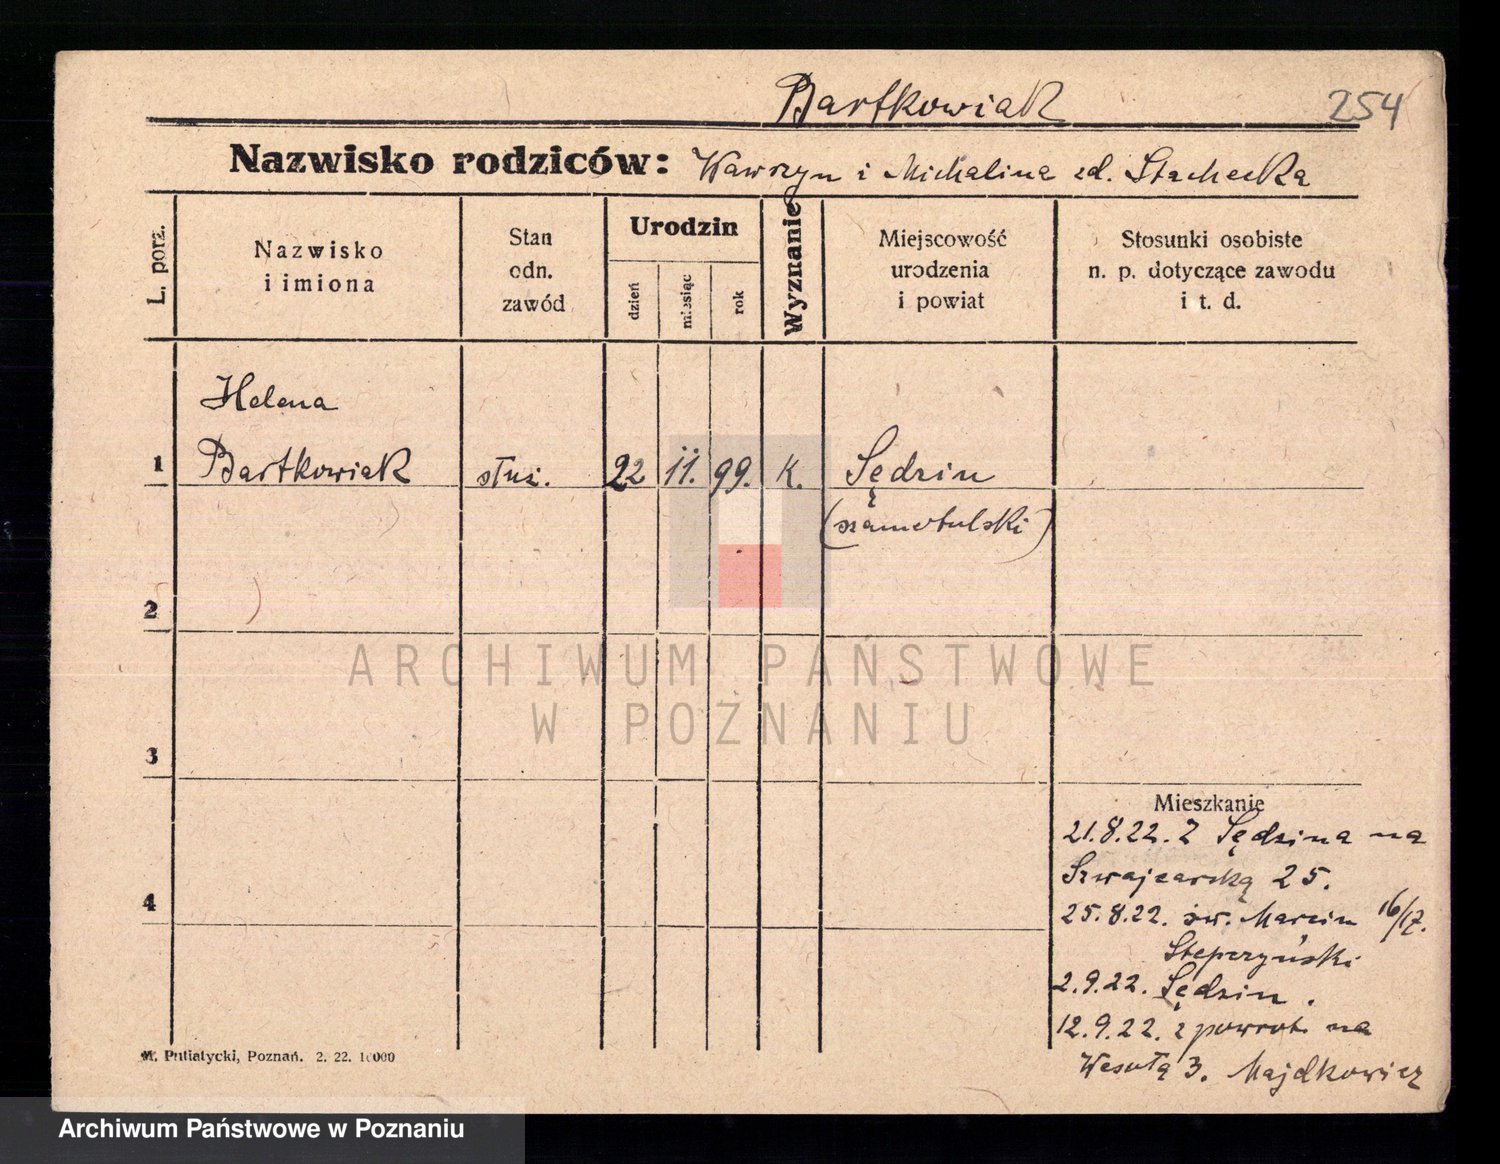 Bartkowiak 254
Nazwisko rodziców: Wawrzyn i Michalina zd. Stachecka
L. porz.
Nazwisko
i imiona
Stan
odn.
zawód
Urodzin
dzień
miesiąc
rok
Wyznanie
Miejscowość
urodzenia
i powiat
Stosunki osobiste
n. p. dotyczące zawodu
i t. d.
Helena
1 Bartkowiak służ. 22 11. 99. K. Sędzin
(szamotulski)
2
3
4
Mieszkanie
21.8.22. Z Sędzina na
Szwajcarską 25.
25.8.22. św. Marcin 16/17.
Stepczyński
2.9.22. Sędzin.
12.9.22. z powrot. na
Wesołą 3. Majdkowicz
M. Putiatycki, Poznań. 2. 22. 10000
ARCHIWUM PAŃSTWOWE
W POZNANIU
Archiwum Państwowe w Poznaniu